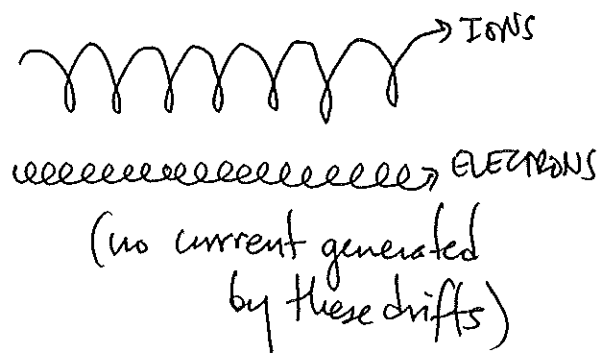 IONS
ELECTRONS
(no current generated
by these drifts)